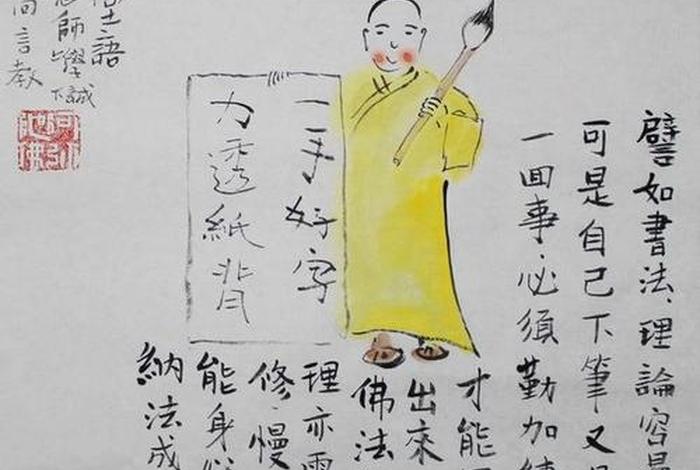 譬如書法,理論容易
可是自己下筆又
一回事,必須勤加練
才能
出來
佛法
理亦需
修,慢
能身
納法成
一手好字
力透紙背
語
師學誠
言教